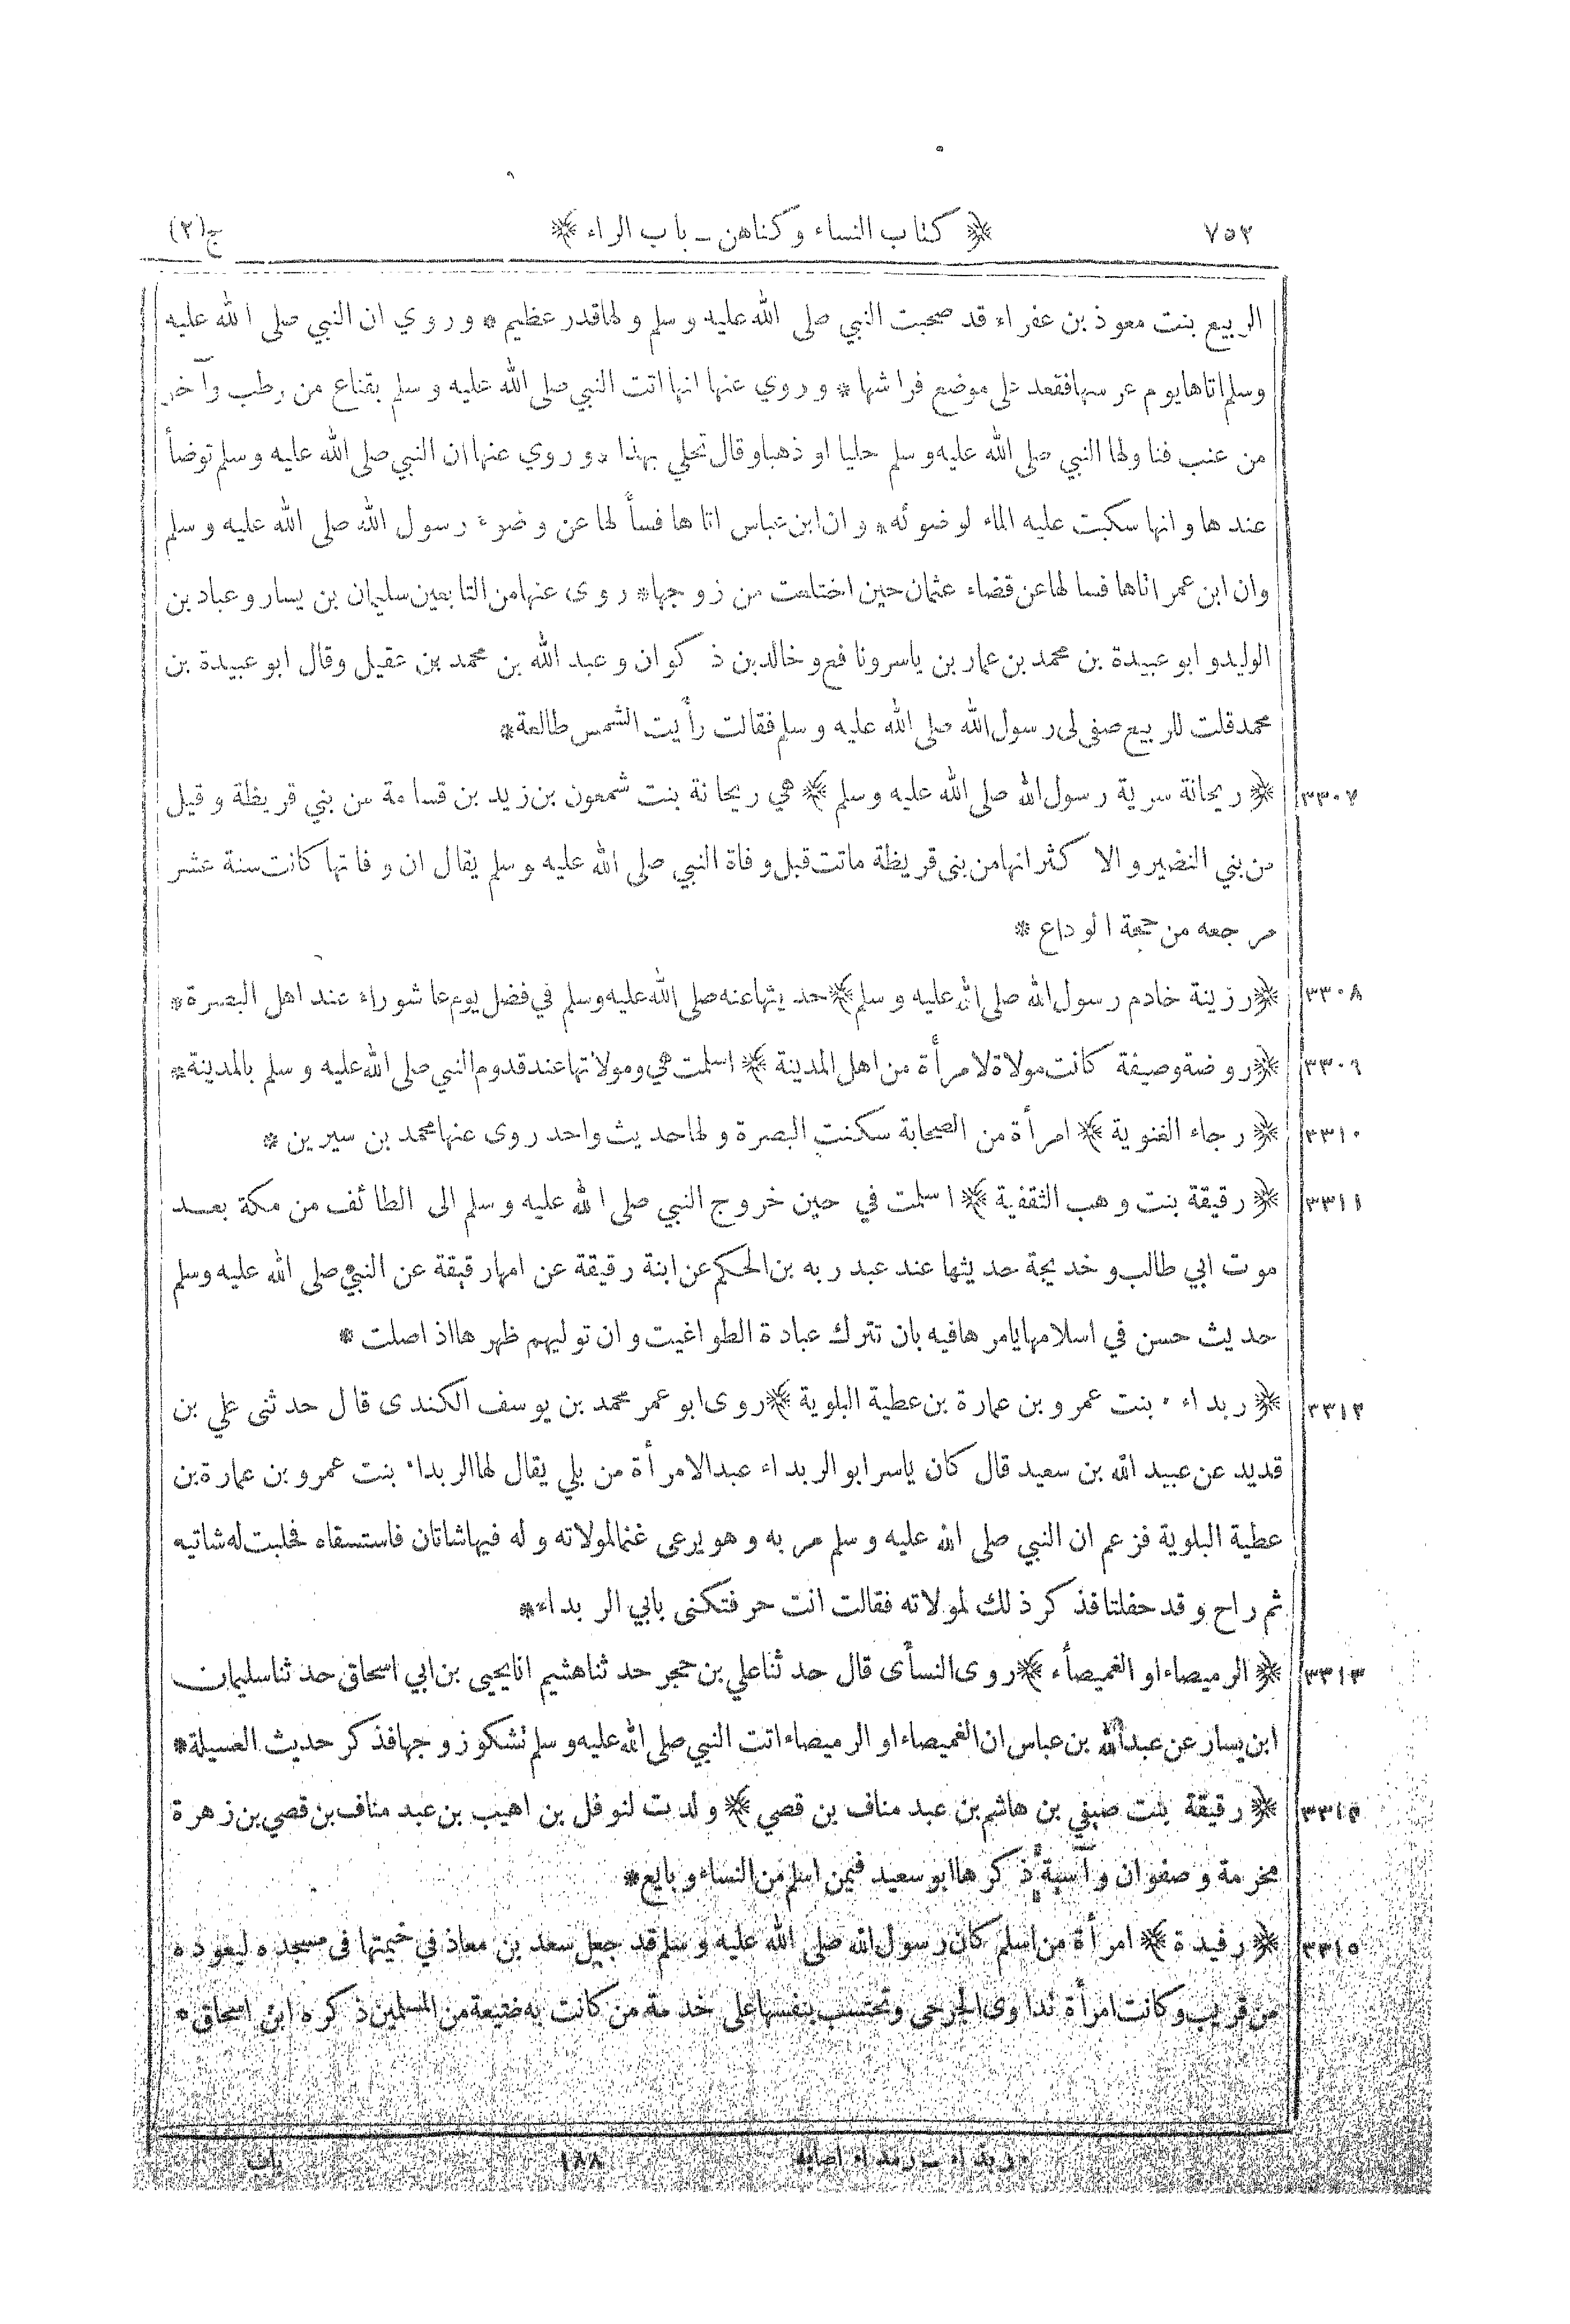 ٧٥٢ ﴿ كتاب النساء وكناهن ـ باب الراء ﴾ ج(٢)
الربيع بنت معوذ بن عفراء قد صحبت النبي صلى الله عليه وسلم ولها قدر عظيم * وروي ان النبي صلى الله عليه
وسلم اتاها يوم عرسها فقعد على موضع فراشها * وروي عنها انها اتت النبي صلى الله عليه وسلم بقناع من رطب وآخر
من عنب فناولها النبي صلى الله عليه وسلم حليا او ذهبا وقال تحلي بهذا * وروي عنها ان النبي صلى الله عليه وسلم توضأ
عندها وانها سكبت عليه الماء لوضوئه * وان ابن عباس اتاها فسألها عن وضوء رسول الله صلى الله عليه وسلم
وان ابن عمر اتاها فسالها عن قضاء عثمان حين اختلعت من زوجها * روى عنها من التابعين سليمان بن يسار وعباد بن
الوليد و ابو عبيدة بن محمد بن عمار بن ياسر ونافع وخالد بن ذكوان وعبد الله بن محمد بن عقيل وقال ابو عبيدة بن
محمد قلت للربيع صفى لى رسول الله صلى الله عليه وسلم فقالت رأيت الشمس طالعة *
٣٣٠٧ ﴿ ريحانة سرية رسول الله صلى الله عليه وسلم ﴾ هي ريحانة بنت شمعون بن زيد بن قسامة من بني قريظة وقيل
من بني النضير والاكثر انها من بنى قريظة ماتت قبل وفاة النبي صلى الله عليه وسلم يقال ان وفاتها كانت سنة عشر
مرجعه من حجة الوداع *
٣٣٠٨ ﴿ رزينة خادم رسول الله صلى الله عليه وسلم ﴾ حديثها عنه صلى الله عليه وسلم في فضل يوم عاشوراء عند اهل البصرة *
٣٣٠٩ ﴿ روضة وصيفة كانت مولاة لامرأة من اهل المدينة ﴾ اسلمت هي ومولاتها عند قدوم النبي صلى الله عليه وسلم بالمدينة *
٣٣١٠ ﴿ رجاء الغنوية ﴾ امرأة من الصحابة سكنت البصرة ولها حديث واحد روى عنها محمد بن سيرين *
٣٣١١ ﴿ رقيقة بنت وهب الثقفية ﴾ اسلمت في حين خروج النبي صلى الله عليه وسلم الى الطائف من مكة بعد
موت ابي طالب وخديجة حديثها عند عبد ربه بن الحكم عن ابنة رقيقة عن امها رقيقة عن النبي صلى الله عليه وسلم
حديث حسن في اسلامها يامرها فيه بان تترك عبادة الطواغيت وان توليهم ظهرها اذا صلت *
٣٣١٢ ﴿ ربداء بنت عمرو بن عمارة بن عطية البلوية ﴾ روى ابو عمر محمد بن يوسف الكندى قال حدثنى علي بن
قديد عن عبيد الله بن سعيد قال كان ياسر ابو الربداء عبدا لامرأة من بلي يقال لها الربداء بنت عمرو بن عمارة بن
عطية البلوية فزعم ان النبي صلى الله عليه وسلم مر به وهو يرعى غنما لمولاته وله فيها شاتان فاستسقاه فحلبت له شاتيه
ثم راح وقد حفلتا فذكر ذلك لمولاته فقالت انت حر فتكنى بابي الربداء *
٣٣١٣ ﴿ الرميصاء او الغميصاء ﴾ روى النسأى قال حدثنا علي بن حجر حدثنا هشيم انا يحيى بن ابي اسحاق حدثنا سليمان
ابن يسار عن عبد الله بن عباس ان الغميصاء او الرميصاء اتت النبي صلى الله عليه وسلم تشكو زوجها فذكر حديث العسيلة *
٣٣١٤ ﴿ رقيقة بنت صيفي بن هاشم بن عبد مناف بن قصي ﴾ ولدت لنوفل بن اهيب بن عبد مناف بن قصي بن زهرة
مخرمة وصفوان وآسية ذكرها ابو سعيد فيمن اسلم من النساء وبايع *
٣٣١٥ ﴿ رفيدة ﴾ امرأة من اسلم كان رسول الله صلى الله عليه وسلم قد جعل سعد بن معاذ في خيمتها فى مسجده ليعوده
من قريب وكانت امرأة تداوى الجرحى وتحتسب بنفسها على خدمة من كانت به ضيعة من المسلمين ذكره ابن اسحاق *
ربداء ـ رمداء اصابه ١٨٨ باب